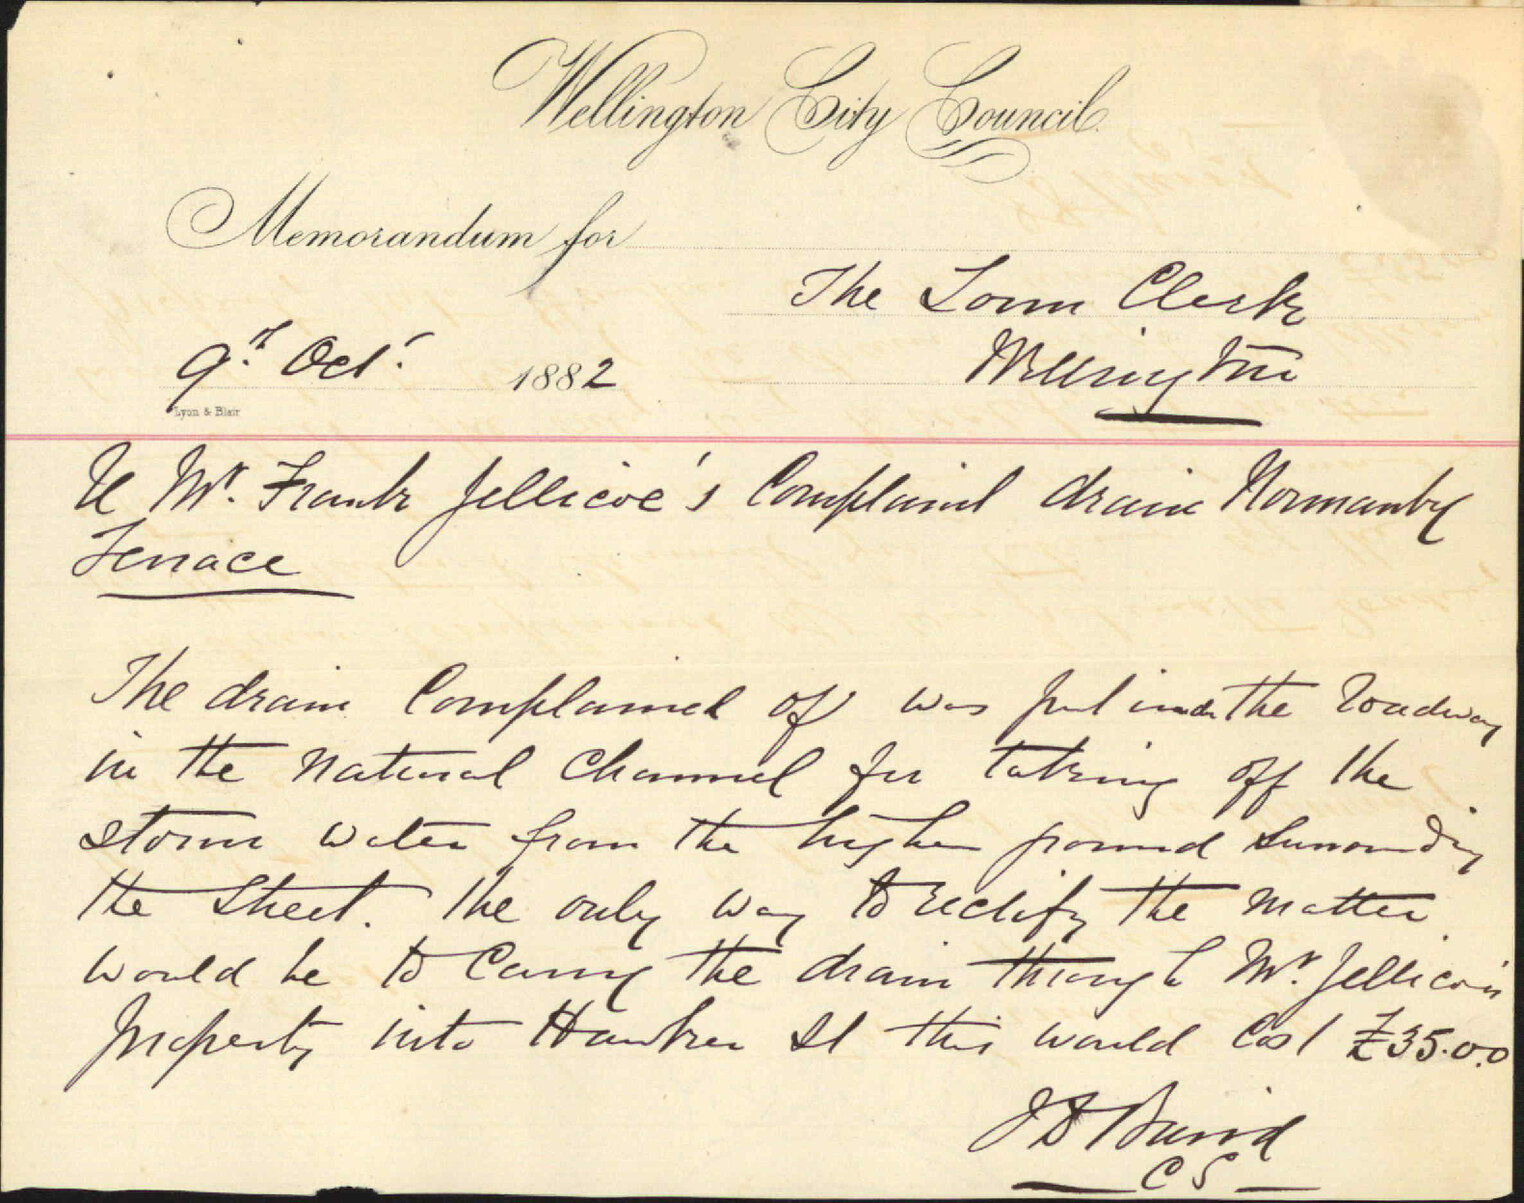 Wellington City Council.
Memorandum for
The Town Clerk
Wellington
9th Oct. 1882
Lyon & Blair
re Mr. Frank Jellicoe's Complaint drain Normanby
Terrace
The drain Complained of was put under the roadway
in the Natural Channel for taking off the
storm water from the higher ground surrounding
the Street. The only way to rectify the matter
would be to Carry the drain through Mr. Jellicoe's
property into Hawker St this would Cost £35.0.0
J D Baird
C S